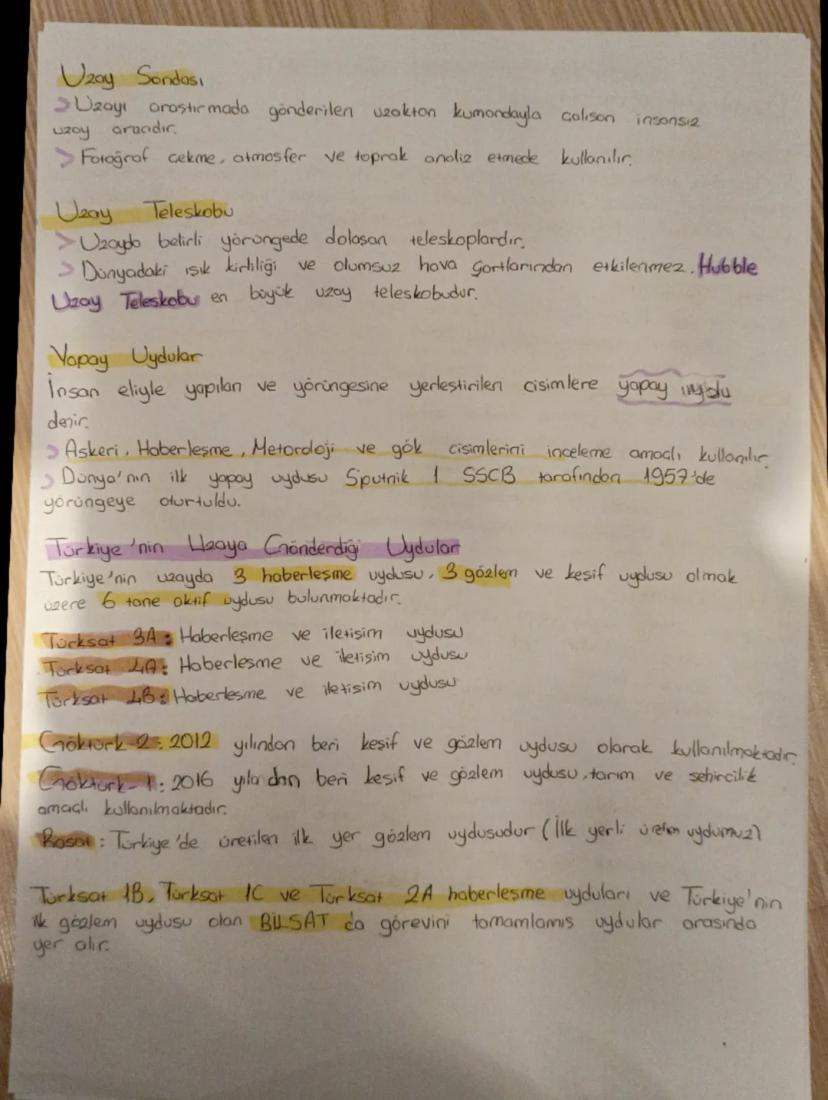 Uzay Sondası
> Uzayı araştırmada gönderilen uzaktan kumandayla çalışan insansız
uzay aracıdır.
> Fotoğraf çekme, atmosfer ve toprak analiz etmede kullanılır.
Uzay Teleskobu
> Uzayda belirli yörüngede dolaşan teleskoplardır.
> Dünyadaki ışık kirliliği ve olumsuz hava şartlarından etkilenmez. Hubble
Uzay Teleskobu en büyük uzay teleskobudur.
Yapay Uydular
İnsan eliyle yapılan ve yörüngesine yerleştirilen cisimlere yapay uydu
denir.
> Askeri, Haberleşme, Metordoloji ve gök cisimlerini inceleme amaçlı kullanılır.
> Dünya'nın ilk yapay uydusu Sputnik 1 SSCB tarafından 1957'de
yörüngeye oturtuldu.
Türkiye'nin Uzaya Gönderdiği Uydular
Türkiye'nin uzayda 3 haberleşme uydusu, 3 gözlem ve keşif uydusu olmak
üzere 6 tane aktif uydusu bulunmaktadır.
Türksat 3A: Haberleşme ve iletişim uydusu
Türksat 4A: Haberleşme ve iletişim uydusu
Türksat 4B: Haberleşme ve iletişim uydusu
Göktürk-2: 2012 yılından beri keşif ve gözlem uydusu olarak kullanılmaktadır.
Göktürk-1: 2016 yılından beri keşif ve gözlem uydusu, tarım ve şehircilik
amaçlı kullanılmaktadır.
Rasat: Türkiye'de üretilen ilk yer gözlem uydusudur (İlk yerli üretim uydumuz)
Türksat 1B, Türksat 1C ve Türksat 2A haberleşme uyduları ve Türkiye'nin
ilk gözlem uydusu olan BİLSAT da görevini tamamlamış uydular arasında
yer alır.